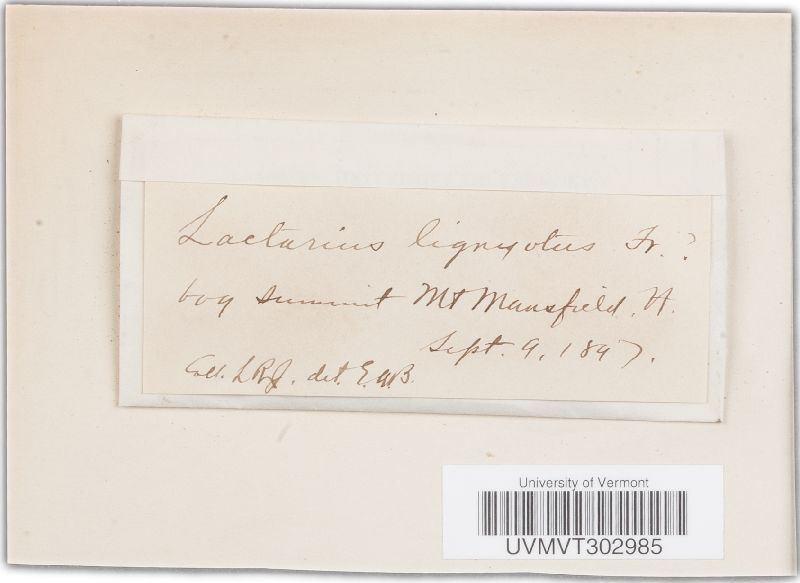 Lactarius lignyotus Fr.?
bog summit Mt Mansfield. Vt.
Sept. 9, 1897.
Coll. LRJ. det. E.A.B.
University of Vermont
UVMVT302985